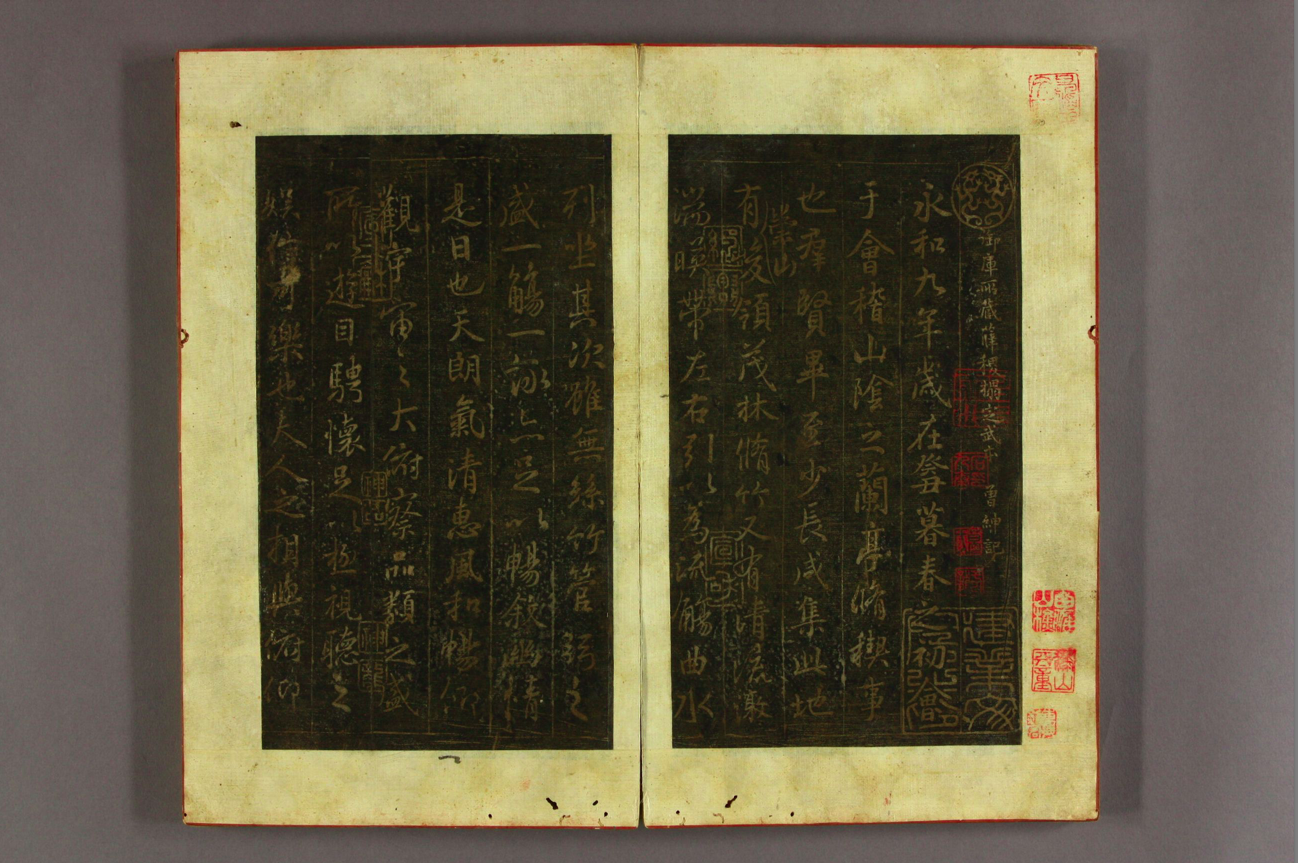 御庫所藏薛稷搨定武本 曾紳記
永和九年歲在癸丑暮春之初會
于會稽山陰之蘭亭脩稧事
也羣賢畢至少長咸集此地
崇山
有峻領茂林脩竹又有清流激
湍暎帶左右引以為流觴曲水
列坐其次雖無絲竹管弦之
盛一觴一詠亦足以暢敘幽情
是日也天朗氣清惠風和暢仰
觀宇宙之大俯察品類之盛
所以遊目騁懷足以極視聽之
娛信可樂也夫人之相與俯仰